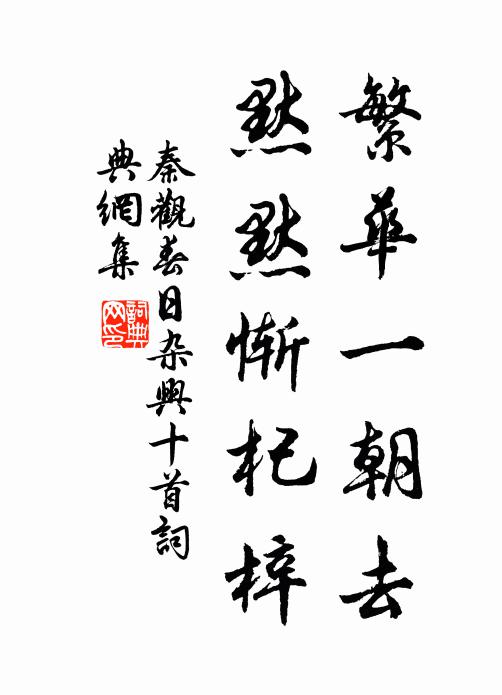 繁華一朝去
默默慚杞梓
秦觀春日杂興十首詞
典網集
詞典
网印